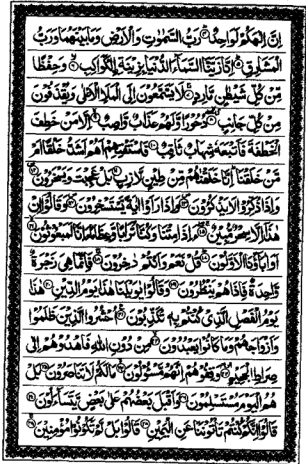 اِنَّ اِلٰهَكُمْ لَوَاحِدٌ ۝ رَبُّ السَّمٰوٰتِ وَالْاَرْضِ وَمَا بَيْنَهُمَا وَرَبُّ
الْمَشَارِقِ ۝ اِنَّا زَيَّنَّا السَّمَآءَ الدُّنْيَا بِزِيْنَةِ ِۨالْكَوَاكِبِ ۝ وَحِفْظًا
مِّنْ كُلِّ شَيْطٰنٍ مَّارِدٍ ۝ لَا يَسَّمَّعُوْنَ اِلَى الْمَلَاِ الْاَعْلٰى وَيُقْذَفُوْنَ
مِنْ كُلِّ جَانِبٍ ۝ دُحُوْرًا وَّلَهُمْ عَذَابٌ وَّاصِبٌ ۝ اِلَّا مَنْ خَطِفَ
الْخَطْفَةَ فَاَتْبَعَهٗ شِهَابٌ ثَاقِبٌ ۝ فَاسْتَفْتِهِمْ اَهُمْ اَشَدُّ خَلْقًا اَمْ
مَّنْ خَلَقْنَا اِنَّا خَلَقْنٰهُمْ مِّنْ طِيْنٍ لَّازِبٍ ۝ بَلْ عَجِبْتَ وَيَسْخَرُوْنَ ۝
وَاِذَا ذُكِّرُوْا لَا يَذْكُرُوْنَ ۝ وَاِذَا رَاَوْا اٰيَةً يَّسْتَسْخِرُوْنَ ۝ وَقَالُوْٓا اِنْ
هٰذَآ اِلَّا سِحْرٌ مُّبِيْنٌ ۝ ءَاِذَا مِتْنَا وَكُنَّا تُرَابًا وَّعِظَامًا ءَاِنَّا لَمَبْعُوْثُوْنَ ۝
اَوَاٰبَآؤُنَا الْاَوَّلُوْنَ ۝ قُلْ نَعَمْ وَاَنْتُمْ دَاخِرُوْنَ ۝ فَاِنَّمَا هِيَ زَجْرَةٌ
وَّاحِدَةٌ فَاِذَا هُمْ يَنْظُرُوْنَ ۝ وَقَالُوْا يٰوَيْلَنَا هٰذَا يَوْمُ الدِّيْنِ ۝ هٰذَا
يَوْمُ الْفَصْلِ الَّذِيْ كُنْتُمْ بِهٖ تُكَذِّبُوْنَ ۝ اُحْشُرُوا الَّذِيْنَ ظَلَمُوْا
وَاَزْوَاجَهُمْ وَمَا كَانُوْا يَعْبُدُوْنَ ۝ مِنْ دُوْنِ اللّٰهِ فَاهْدُوْهُمْ اِلٰى
صِرَاطِ الْجَحِيْمِ ۝ وَقِفُوْهُمْ اِنَّهُمْ مَّسْئُوْلُوْنَ ۝ مَا لَكُمْ لَا تَنَاصَرُوْنَ ۝ بَلْ
هُمُ الْيَوْمَ مُسْتَسْلِمُوْنَ ۝ وَاَقْبَلَ بَعْضُهُمْ عَلٰى بَعْضٍ يَّتَسَآءَلُوْنَ ۝
قَالُوْٓا اِنَّكُمْ كُنْتُمْ تَاْتُوْنَنَا عَنِ الْيَمِيْنِ ۝ قَالُوْا بَلْ لَّمْ تَكُوْنُوْا مُؤْمِنِيْنَ ۝